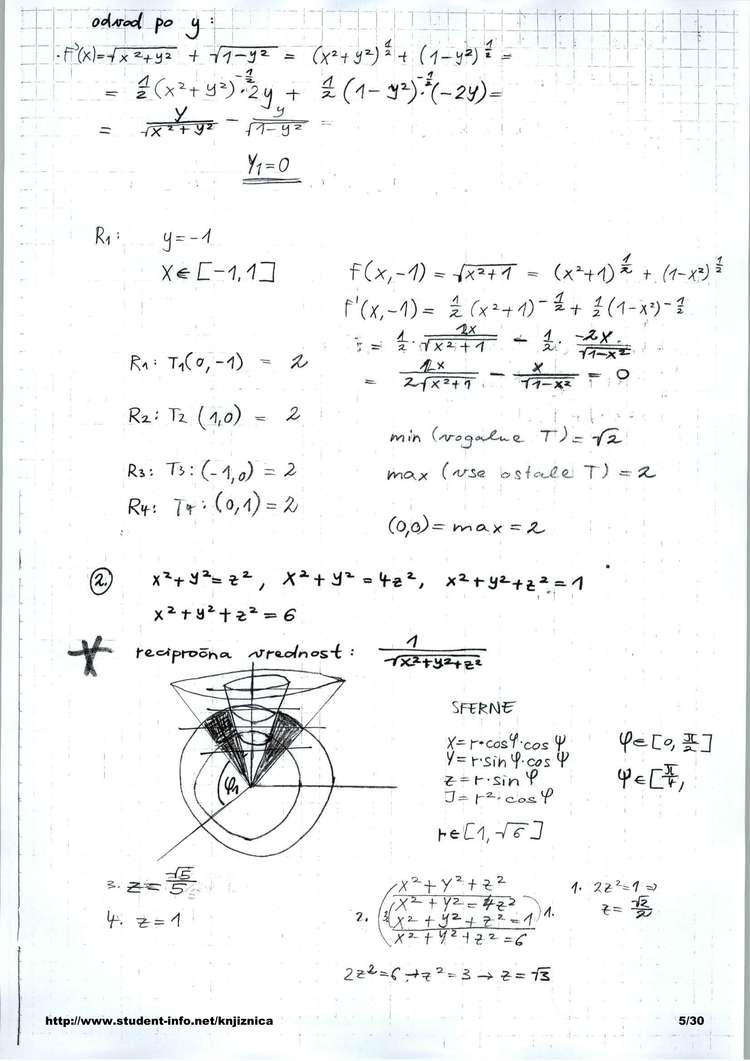 odvod po y:
F'(x)=√x²+y² + √1-y² = (x²+y²)^½ + (1-y²)^½ =
= ½(x²+y²)^-½·2y + ½(1-y²)^-½·(-2y)=
= y/√x²+y² - y/√1-y² =
Y₁=0
R₁: y=-1
X∈[-1,1]
f(x,-1) = √x²+1 = (x²+1)^½ + (1-x²)^½
f'(x,-1) = ½(x²+1)^-½ + ½(1-x²)^-½
= ½ · 2x/√x²+1 - ½ · -2x/√1-x²
= 2x/2√x²+1 - x/√1-x² = 0
R₁: T₁(0,-1) = 2
R₂: T₂(1,0) = 2
R₃: T₃:(-1,0) = 2
R₄: T₄:(0,1) = 2
min (vogalne T) = √2
max (vse ostale T) = 2
(0,0) = max = 2
2. x²+y²=z², x²+y²=4z², x²+y²+z²=1
x²+y²+z²=6
recipročna vrednost: 1/√x²+y²+z²
φ₁
SFERNE
X=r·cosφ·cosψ
Y=r·sinφ·cosψ
z=r·sinψ
J=r²·cosψ
r∈[1,√6]
φ∈[0,π/2]
ψ∈[π/4,
3. z=√5/5
4. z=1
x²+y²+z²
x²+y²=4z²
2. x²+y²+z²=1 1.
x²+y²+z²=6
2z²=6→z²=3→z=√3
1. 2z²=1⇒
z=√2/2
http://www.student-info.net/knjiznica 5/30